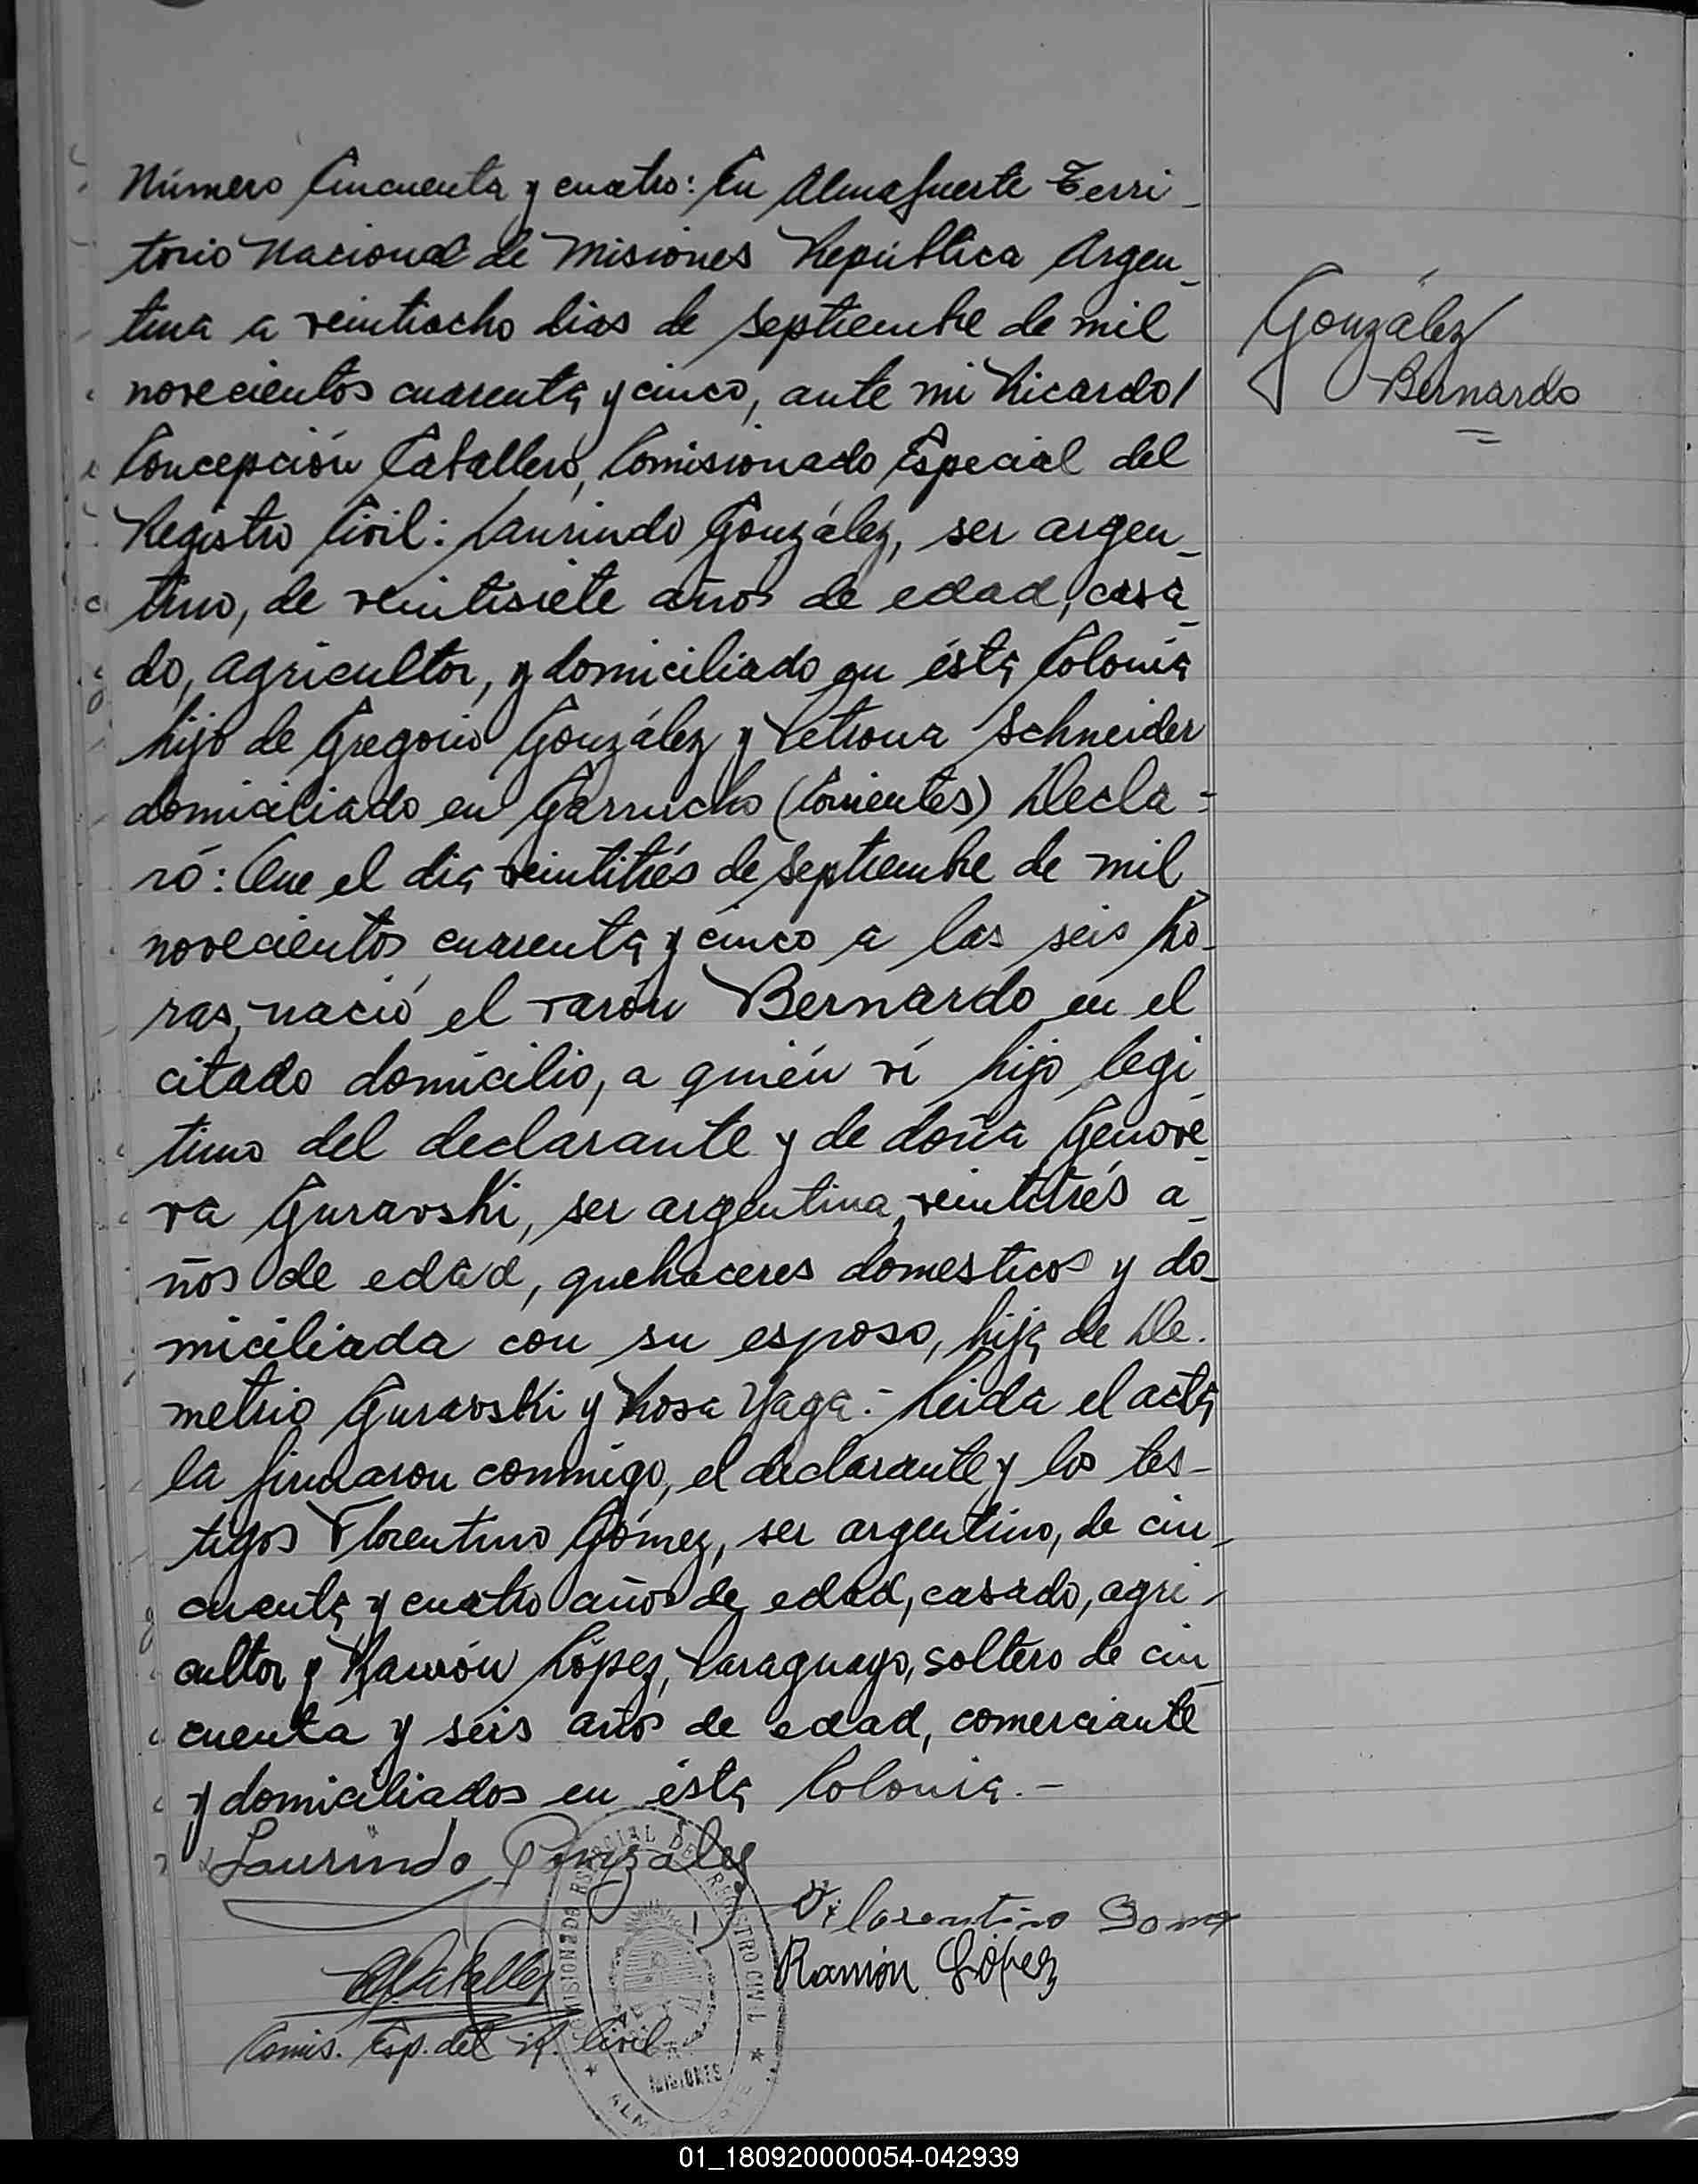 Número Cincuenta y cuatro: En Almafuerte Terri_
torio Nacional de Misiones República Argen_
tina a veintiocho dias de septiembre de mil
novecientos cuarenta y cinco, ante mi Ricardo/
Concepción Caballero, Comisionado Especial del
Registro Civil: Laurindo González, ser argen_
tino, de veintisiete años de edad, casa_
do, agricultor, y domiciliado en ésta Colonia
hijo de Gregorio González y Petrona Schneider
domiciliado en Garruchο (Corrientes) Decla=
ró: Que el dia veintitrés de septiembre de mil
novecientos cuarenta y cinco a las seis ho_
ras, nació el varón Bernardo en el
citado domicilio, a quién ví hijo legi_
timo del declarante y de doña Genove_
va Guravski, ser argentina, veintitrés a_
ños de edad, quehaceres domesticos y do_
miciliada con su esposo, hija de De.
metrio Guravski y Rosa Yaga.- Leida el acta
la firmaron conmigo, el declarante y los tes-
tigos Florentino Gómez, ser argentino, de cin_
cuenta y cuatro años de edad, casado, agri_
cultor y Ramón López, Paraguayo, soltero de cin_
cuenta y seis años de edad, comerciante
y domiciliados en ésta Colonia.-
González
Bernardo
Laurindo Gonzalez
Florentino Gomez
Ramón López
Comis. Esp. del R. Civil
COMISION DE ESPECIAL DEL REGISTRO CIVIL
MISIONES
01_180920000054-042939